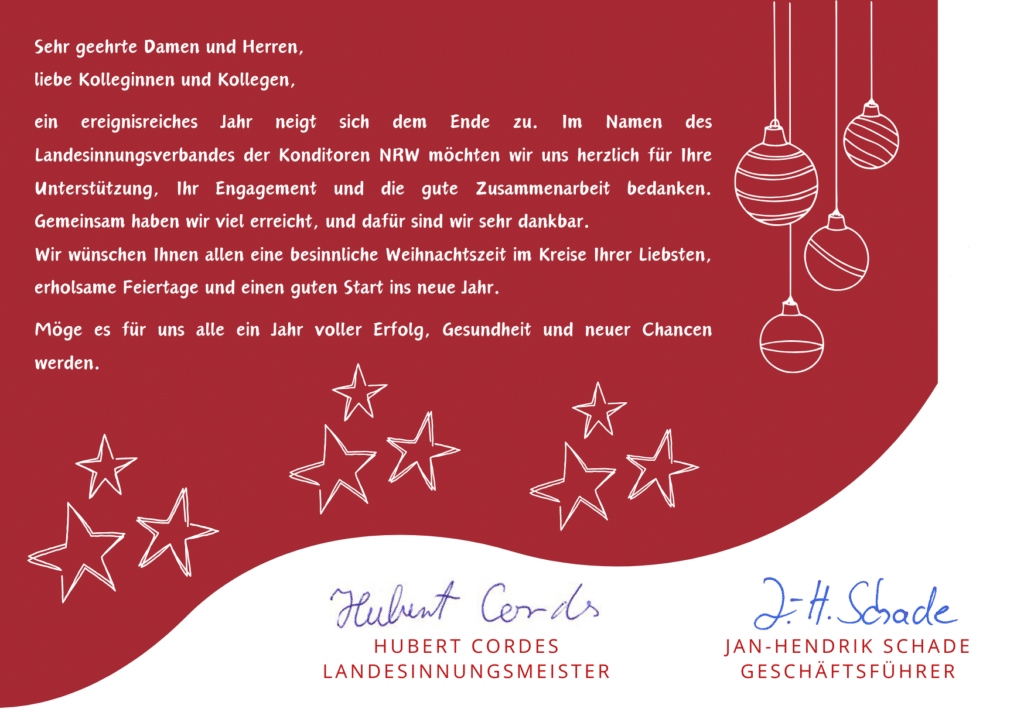 Sehr geehrte Damen und Herren,
liebe Kolleginnen und Kollegen,
ein ereignisreiches Jahr neigt sich dem Ende zu. Im Namen des
Landesinnungsverbandes der Konditoren NRW möchten wir uns herzlich für Ihre
Unterstützung, Ihr Engagement und die gute Zusammenarbeit bedanken.
Gemeinsam haben wir viel erreicht, und dafür sind wir sehr dankbar.
Wir wünschen Ihnen allen eine besinnliche Weihnachtszeit im Kreise Ihrer Liebsten,
erholsame Feiertage und einen guten Start ins neue Jahr.
Möge es für uns alle ein Jahr voller Erfolg, Gesundheit und neuer Chancen
werden.
Hubert Cordes
HUBERT CORDES
LANDESINNUNGSMEISTER
J.-H. Schade
JAN-HENDRIK SCHADE
GESCHÄFTSFÜHRER